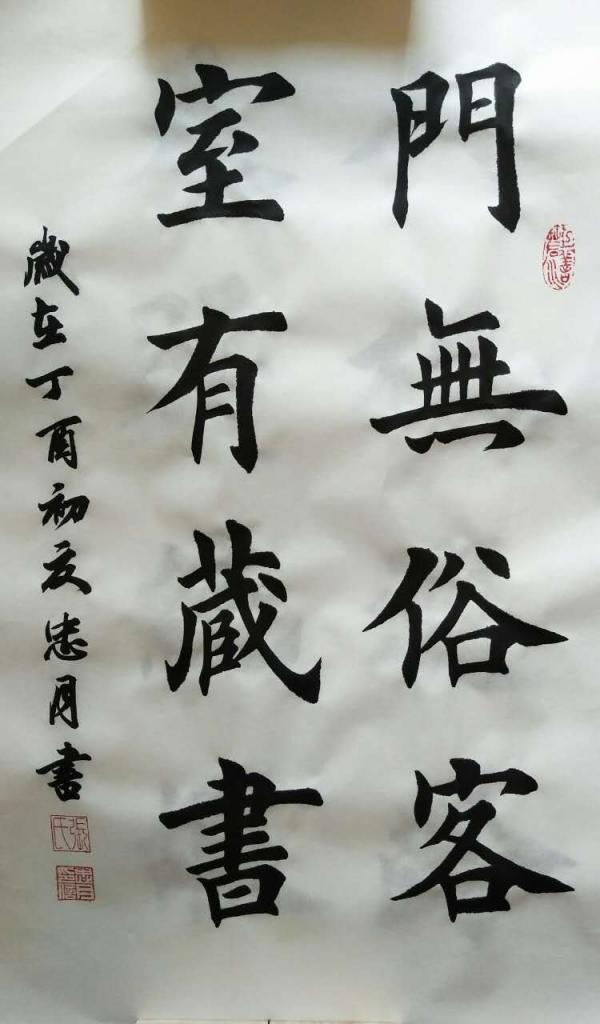 門無俗客
室有蔵書
歲在丁酉初夏忠月書
張氏